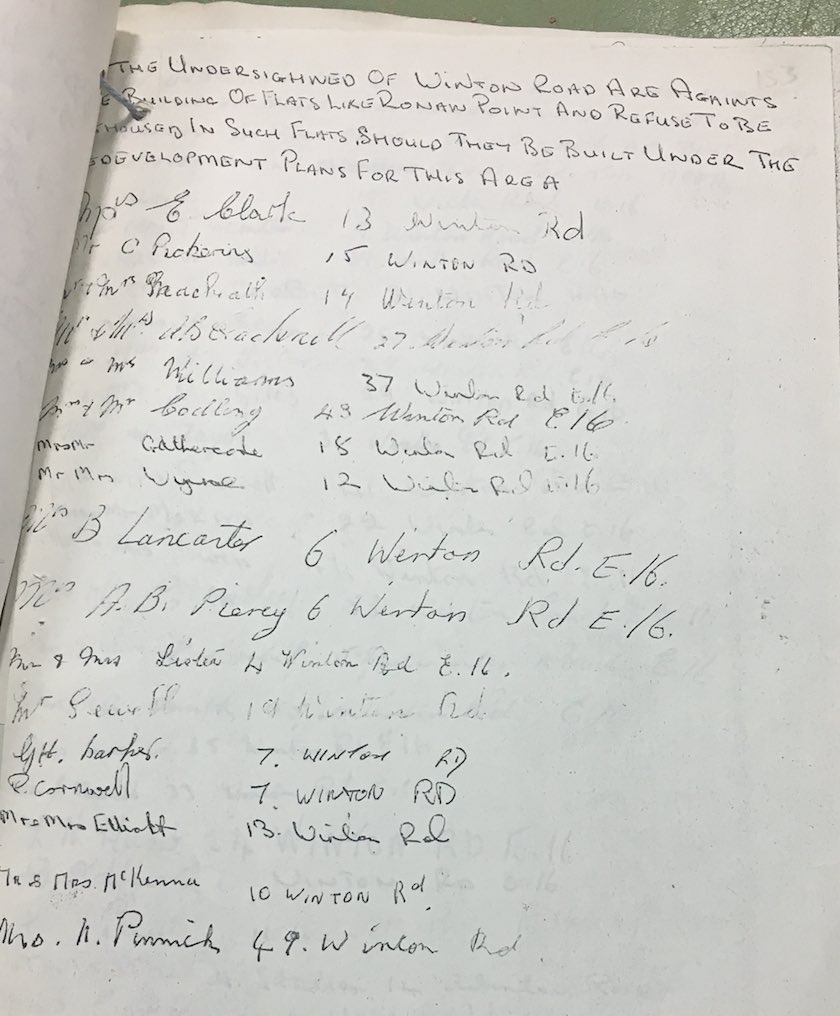 THE UNDERSIGHNED OF WINTON ROAD ARE AGAINTS
BUILDING OF FLATS LIKE RONAN POINT AND REFUSE TO BE
HOUSED IN SUCH FLATS, SHOULD THEY BE BUILT UNDER THE
DEVELOPMENT PLANS FOR THIS AREA
Mrs E. Clark 13 Winton Rd
Mr C Pickering 15 WINTON RD
Mrs 14 Winton Rd
Mr & Mrs 27 Winton Rd E.16
Mrs Williams 37 Winton Rd E.16.
Mrs & Mr Codling 43 Winton Rd E.16
Mrs Mr Gathercole 18 Winton Rd E.16
Mr Mrs 12 Winton Rd E.16
Mrs B Lancaster 6 Winton Rd. E.16.
Mrs A.B. Piercy 6 Winton Rd E.16.
Mr & Mrs Lister 4 Winton Rd E.16.
Mr Sewell 19 Winton Rd
GH. 7. WINTON RD
P. Cornwell 7. WINTON RD
Mr & Mrs Elliott 13. Winton Rd
MR & MRS. McKenna 10 WINTON Rd.
Mrs. Pinnick 49. Winton Rd